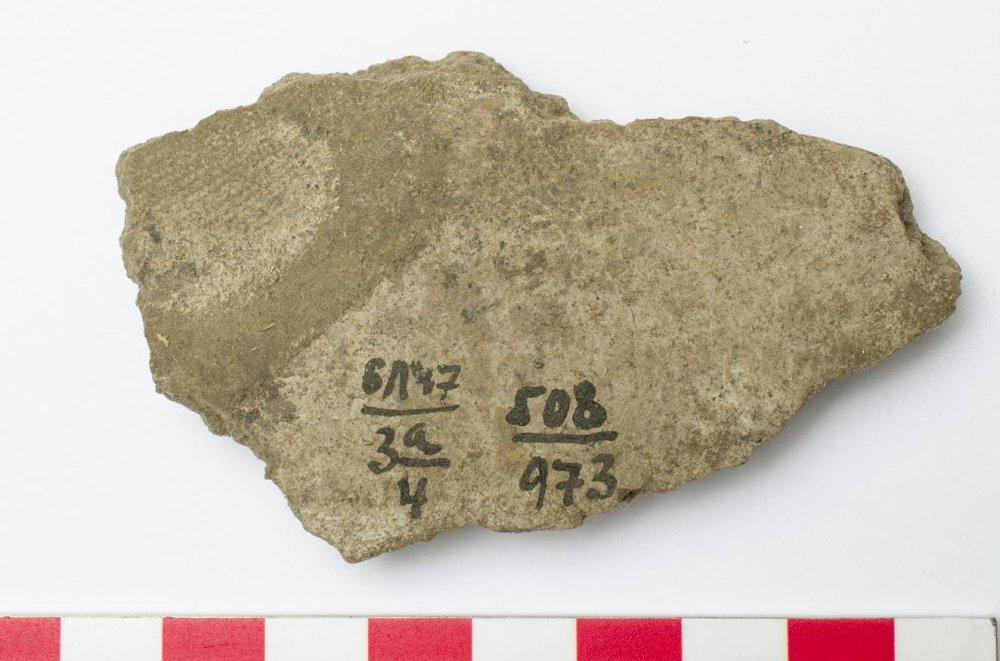 БЛ47
3a
4
508
973